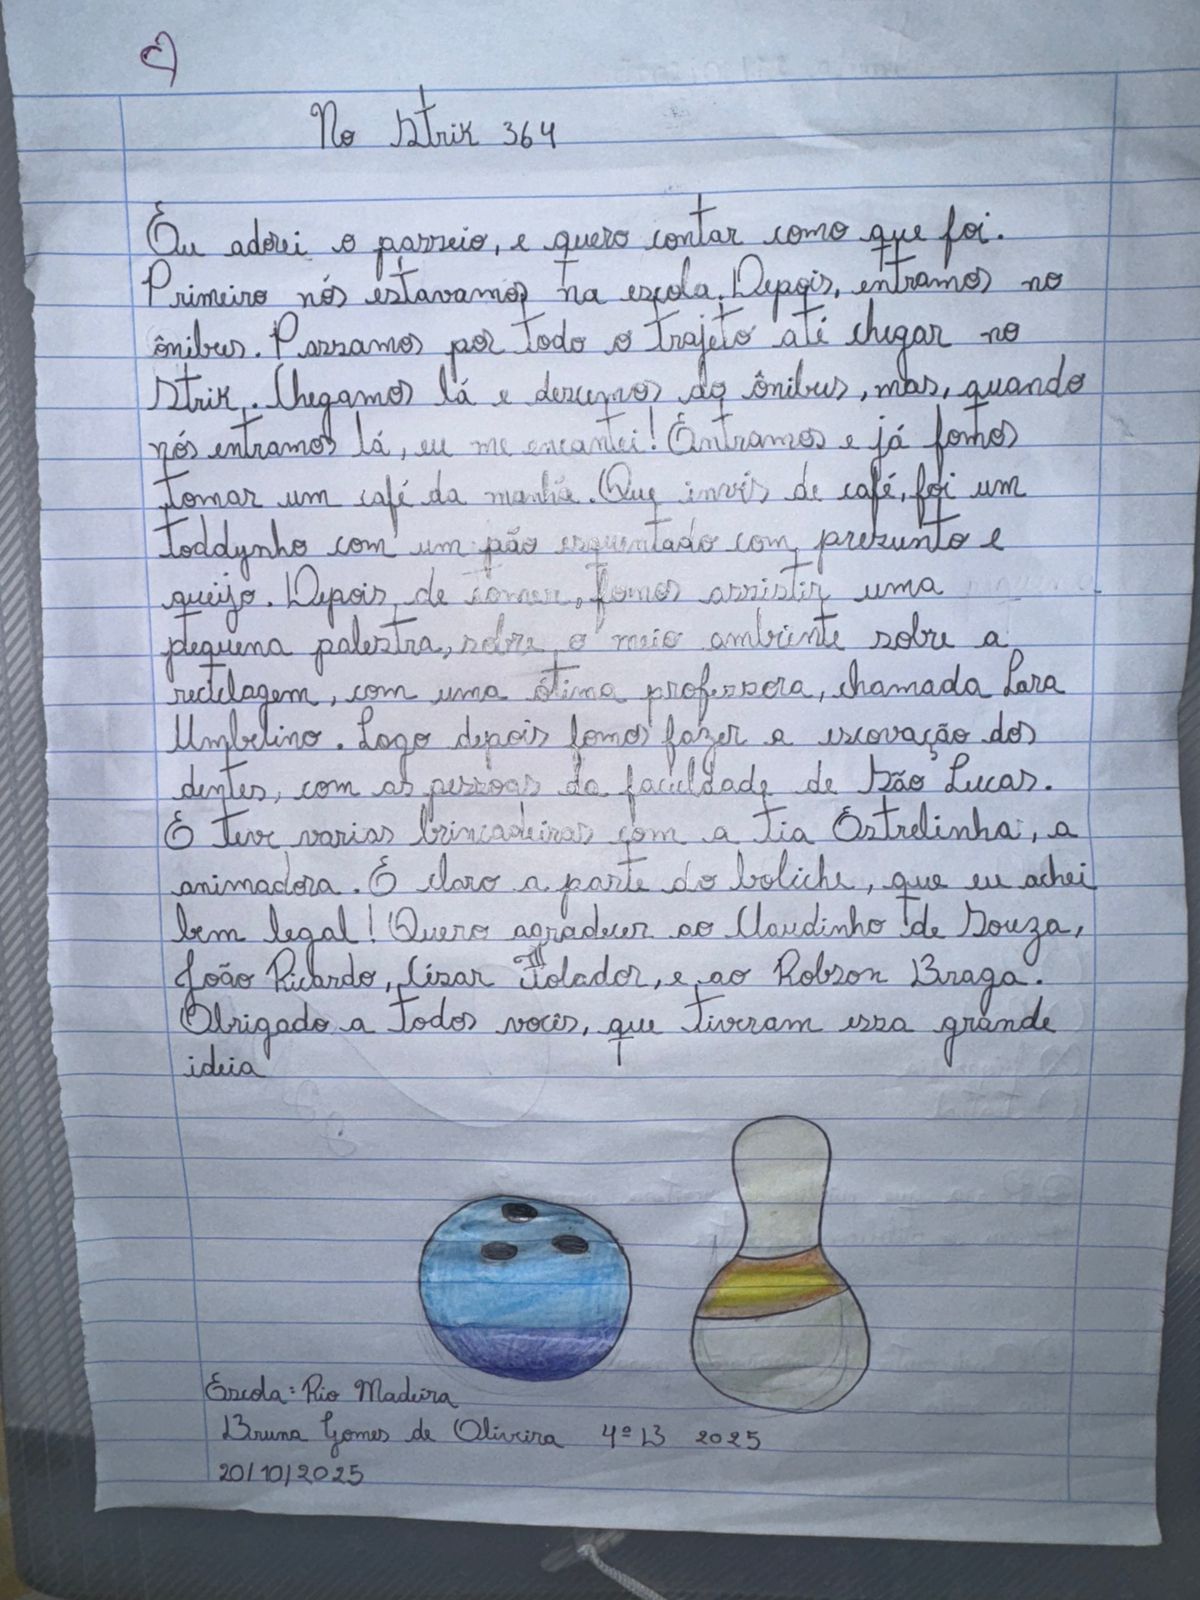 No Strik 364
Eu adorei o passeio, e quero contar como que foi.
Primeiro nós estavamos na escola. Depois, entramos no
ônibus. Passamos por todo o trajeto até chegar no
Strik. Chegamos lá e descemos do ônibus, mas, quando
nós entramos lá, eu me encantei! Entramos e já fomos
tomar um café da manhã. Que invés de café, foi um
toddynho com um pão esquentado com presunto e
queijo. Depois de comer, fomos assistir uma
pequena palestra, sobre o meio ambiente sobre a
reciclagem, com uma ótima professora, chamada Lara
Umbelino. Logo depois fomos fazer a escovação dos
dentes, com as pessoas da faculdade de São Lucas.
E teve varias brincadeiras com a tia Estrelinha, a
animadora. E claro a parte do boliche, que eu achei
bem legal! Quero agradecer ao Claudinho de Souza,
João Ricardo, César, e ao Robson Braga.
Obrigado a todos vocês, que tiveram essa grande
ideia
Escola: Rio Madeira
Bruna Gomes de Oliveira 4º B 2025
20/10/2025